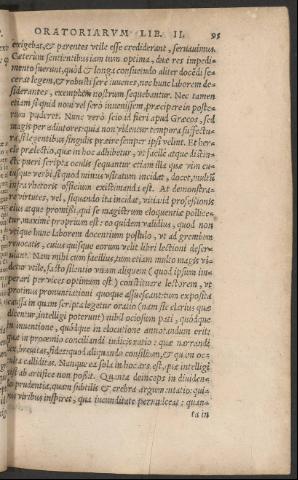 ORATORIARVM LIB. II. 95
exigebat, & parentes vtile esse crediderant, seruauimus.
Cæterùm sentientibus iam tum optima, duæ res impedi-
mento fuerunt, quòd & longa consuetudo aliter docēdi fe-
cerat legem, & robusti ferè iuuenes, nec hunc laborem de-
siderantes, exemplum nostrum sequebantur. Nec tamen
etiam si quid noui vel serò inuenissem, præcipere in poste-
rum puderet. Nunc verò scio id fieri apud Græcos, sed
magis per adiutores: quia non videntur tempora suffectu-
ra, si legentibus singulis præire semper ipsi velint. Et her-
cle prælectio, quæ in hoc adhibetur, vt facilè atque distin-
cte pueri scripta oculis sequantur etiam illa quæ vim cu-
iusque verbi si quod minus vsitatum incidat, docet, multū
infra rhetoris officium existimanda est. At demonstra-
re virtutes, vel, siquando ita incidat, vitia, id professionis
eius atque promissi, qui se magistrum eloquentiæ pollice-
tur, maximè proprium est: eo quidem validius, quod non
vtique hunc laborem docentium postulo, vt ad gremium
reuocatis, cuius quisque eorum velit libri lectioni deser-
uiant. Nam mihi cum facilius, tum etiam multo magis vi-
detur vtile, facto silentio vnum aliquem (quod ipsum im-
perari per vices optimum est) constituere lectorem, vt
protinus pronuntiationi quoque assuescant: tum exposita
causa in quam scripta legetur oratio (nam sic clarius quæ
dicentur, intelligi poterunt) nihil ociosum pati, quódque
in inuentione, quódque in elocutione annotandum erit:
quæ in proœmio conciliandi iudicis ratio: quæ narrandi
lux, breuitas, fides: quod aliquando consilium, & quàm oc-
culta calliditas. Nanque ea sola in hoc ars est, quæ intelligi
nisi ab artifice non possit. Quanta deinceps in diuiden-
do prudentia, quàm subtilis & crebra argumentatio: qui-
bus viribus inspiret, qua iucunditate permulceat: quan-
ta in